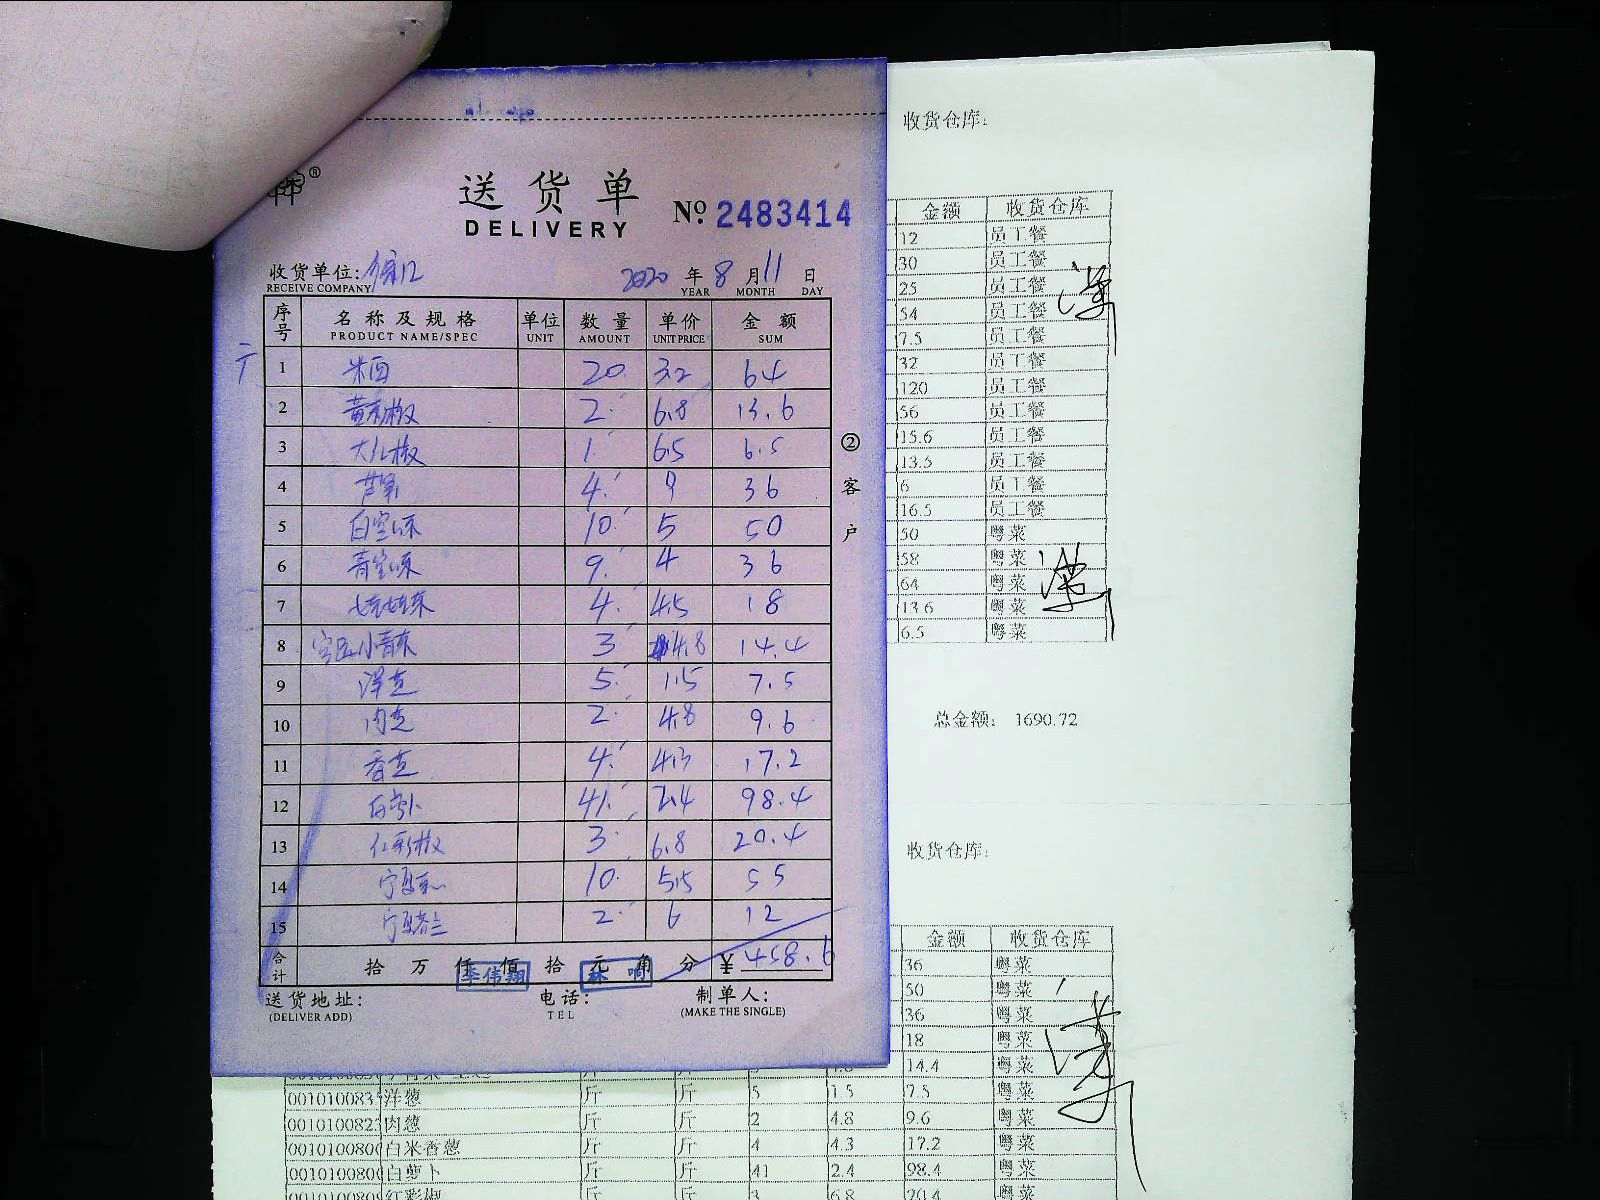 送货单
DELIVERY
№ 2483414
收货单位:
RECEIVE COMPANY
2020 年 8 月 11 日
YEAR MONTH DAY
序号 名称及规格 单位 数量 单价 金额
PRODUCT NAME/SPEC UNIT AMOUNT UNIT PRICE SUM
1 米西 20 3.2 64
2 黄彩椒 2 6.8 13.6
3 大儿椒 1 6.5 6.5
4 芦笋 4 9 36
5 10 5 50
6 9 4 36
7 4 4.5 18
8 3 4.8 14.4
9 洋芝 5 1.5 7.5
10 肉芝 2 4.8 9.6
11 香芝 4 4.3 17.2
12 白卜 41 2.4 98.4
13 红彩椒 3 6.8 20.4
14 宁夏 10 5.5 55
15 宁夏 2 6 12
合计 拾 万 仟 佰 拾 元 角 分 ¥ 458.6
李伟翔
送货地址: 电话: 制单人:
(DELIVER ADD) TEL (MAKE THE SINGLE)
②客户
收货仓库:
金额 收货仓库
12 员工餐
30 员工餐
25 员工餐
54 员工餐
7.5 员工餐
32 员工餐
120 员工餐
56 员工餐
15.6 员工餐
13.5 员工餐
6 员工餐
16.5 员工餐
50 粤菜
58 粤菜
64 粤菜
13.6 粤菜
6.5 粤菜
总金额: 1690.72
收货仓库:
金额 收货仓库
36 粤菜
50 粤菜
36 粤菜
18 粤菜
14.4 粤菜
洋葱 斤 斤 5 1.5 7.5 粤菜
肉葱 斤 斤 2 4.8 9.6 粤菜
白米香葱 斤 斤 4 4.3 17.2 粤菜
白萝卜 斤 斤 41 2.4 98.4 粤菜
红彩椒 斤 斤 3 6.8 20.4 粤菜